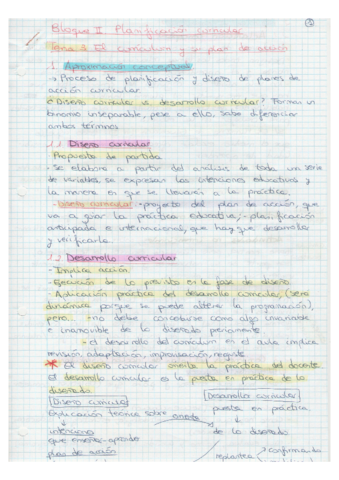 Bloque II Planificación curricular
Tema 3 El curriculum y su plan de acción
1. Aproximación conceptual
→ Proceso de planificación y diseño de planes de
acción curricular.
¿Diseño curricular vs desarrollo curricular? Forman un
binomio inseparable, pese a ello, saber diferenciar
ambos términos
1.1 Diseño curricular
Propuesta de partida
- Se elabora a partir del análisis de toda una serie
de variables, se expresan las intenciones educativas y
la manera en que se llevarán a la práctica.
- Diseño curricular → proyecto del plan de acción, que
va a guiar la práctica educativa; - planificación
anticipada e internacional, que hay que desarrollar
y verificarla.
1.2 Desarrollo curricular
- Implica acción.
- Ejecución de lo previsto en la fase de diseño
- Aplicación práctica del desarrollo curricular, (será
dinámica porque se puede alterar la programación),
pero: - no debe concebirse como algo invariable
e inamovible de lo diseñado previamente
- el desarrollo del curriculum en el aula implica
revisión, adaptación, improvisación, reajuste
* El diseño curricular orienta la práctica del docente
El desarrollo curricular es la puesta en práctica de lo
diseñado
Diseño curricular
Desarrollo curricular
Explicación teórica sobre
orienta
puesta en práctica
de lo diseñado
que enseñar-aprender
plan de acción
replantea
confirmado